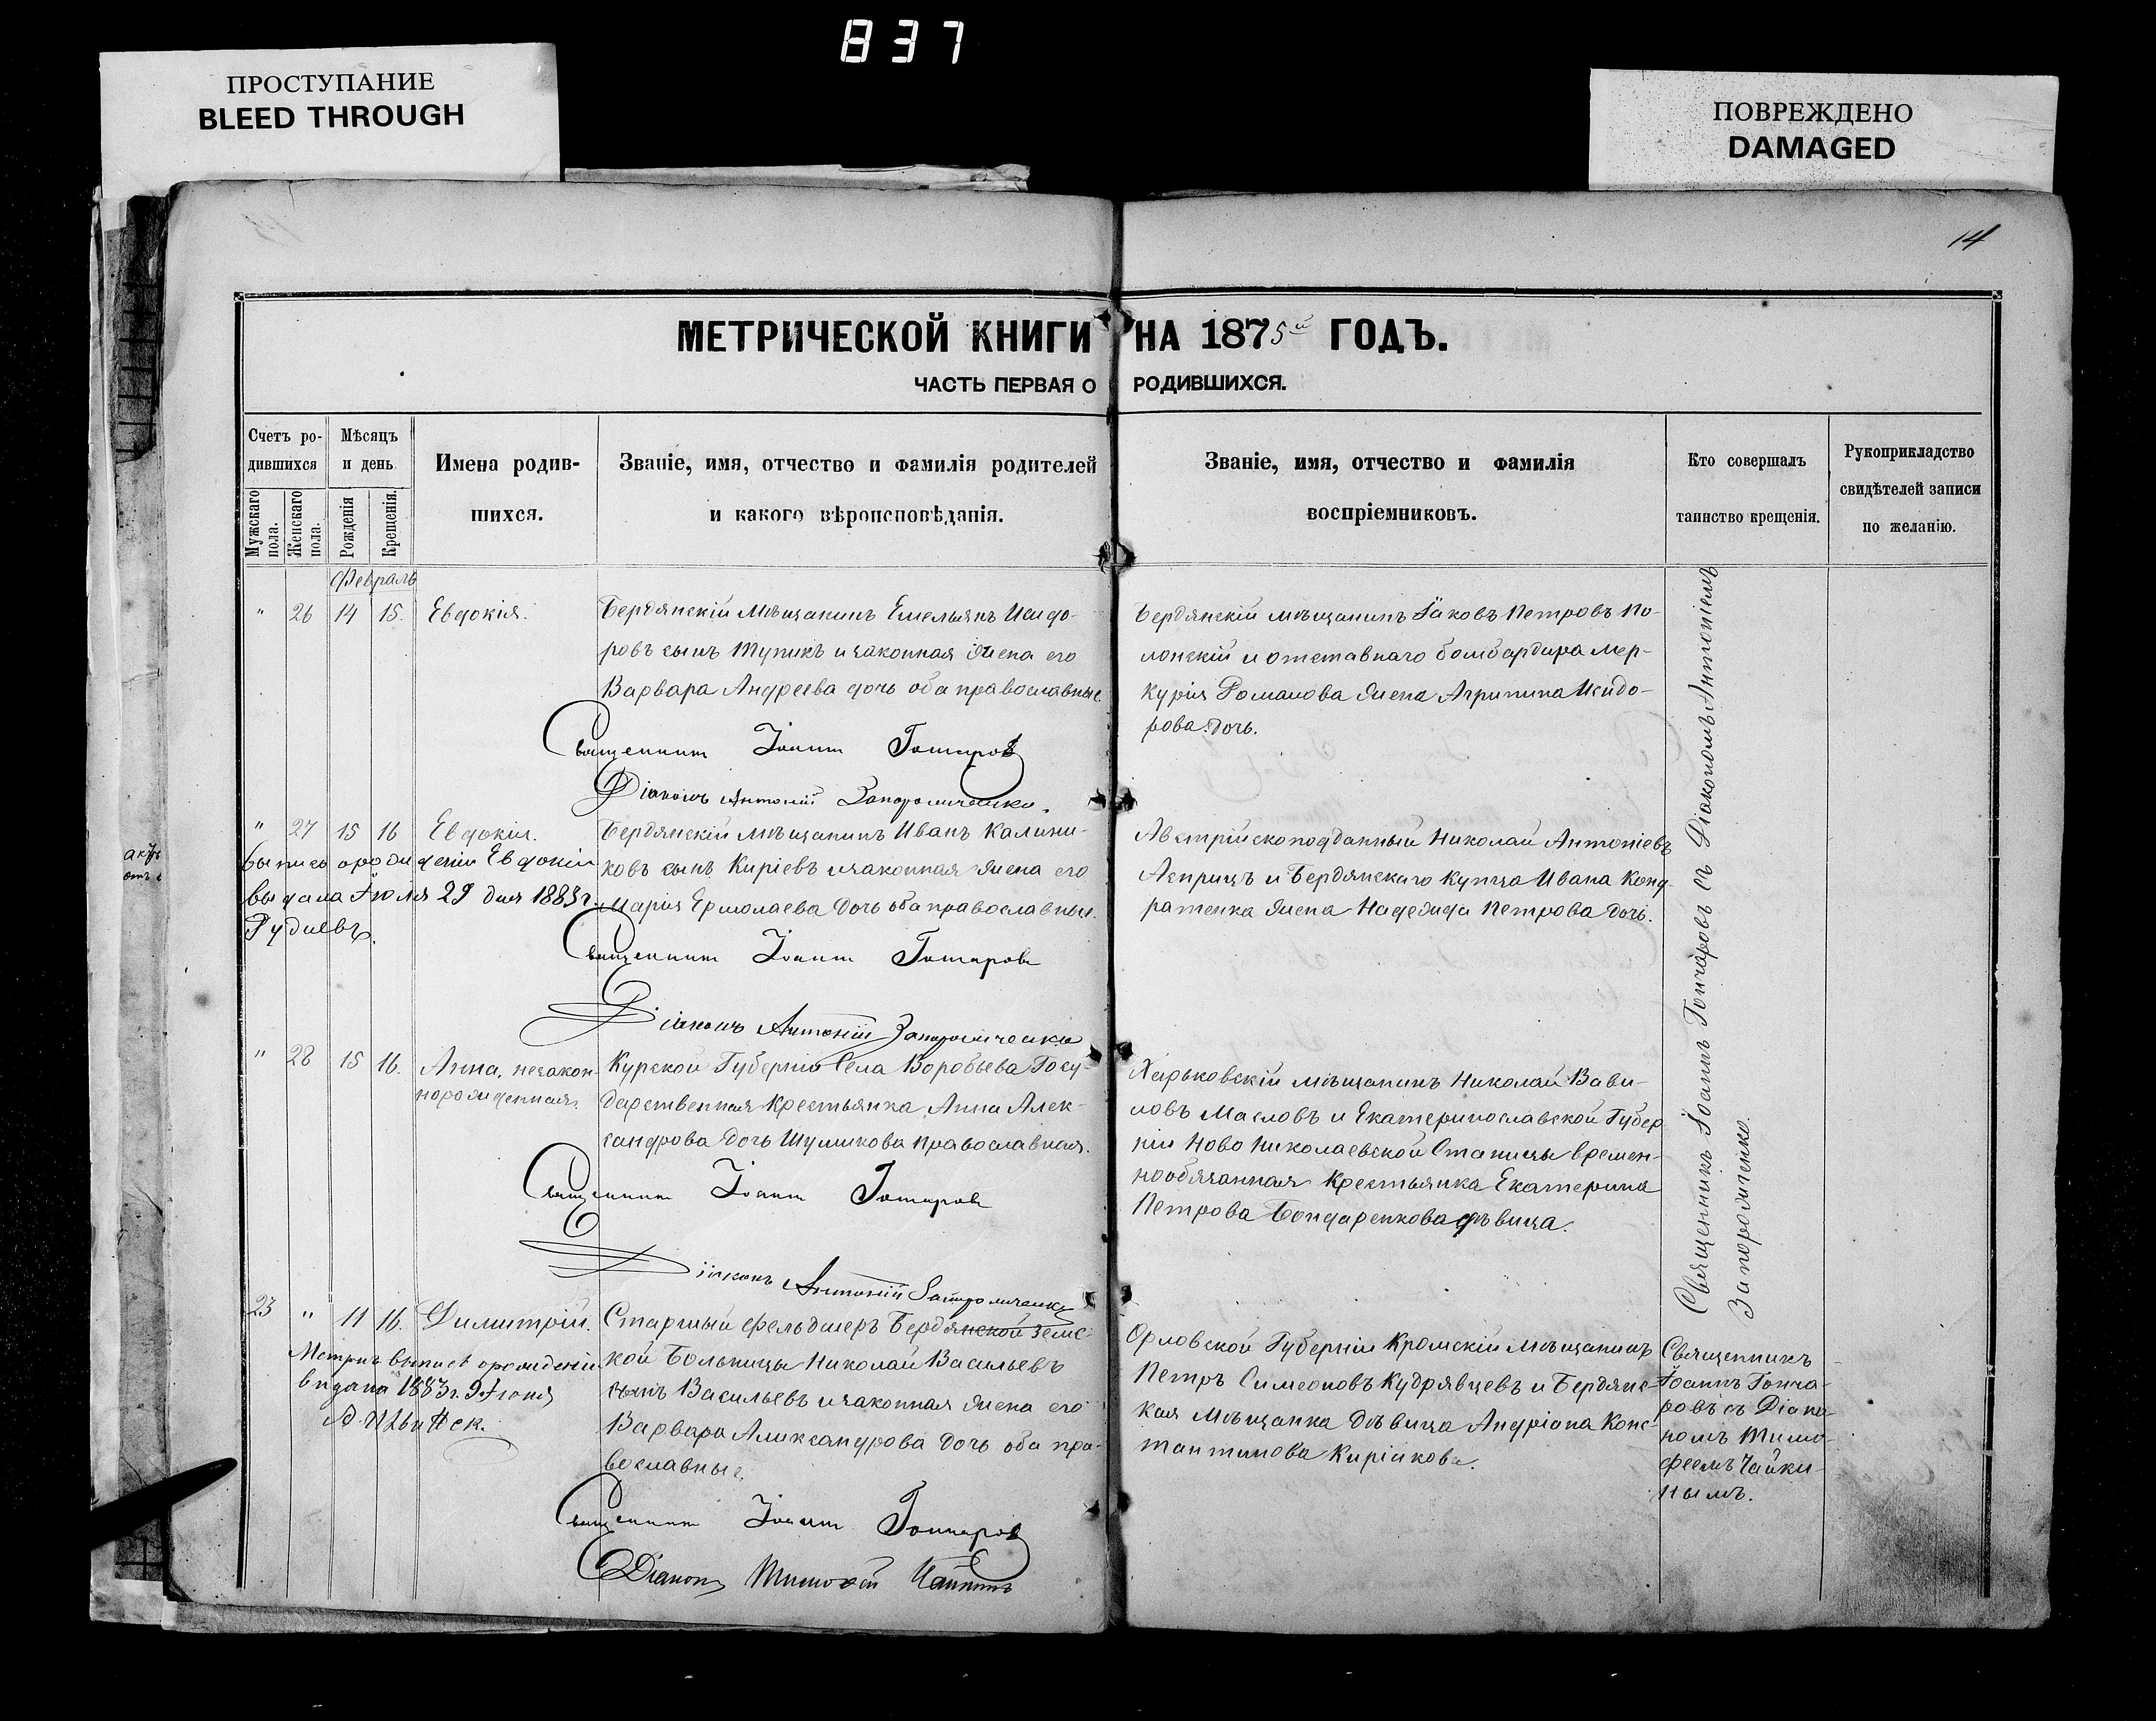 837
ПРОСТУПАНИЕ
BLEED THROUGH
ПОВРЕЖДЕНО
DAMAGED
14
МЕТРИЧЕСКОЙ КНИГИ НА 1875й ГОДЪ.
ЧАСТЬ ПЕРВАЯ О РОДИВШИХСЯ.
Счетъ ро-
дившихся
Мужскаго
пола.
Женскаго
пола.
Мѣсяцъ
и день
Рожденія
Крещенія.
Имена родив-
шихся.
Званіе, имя, отчество и фамилія родителей
и какого вѣроисповѣданія.
Званіе, имя, отчество и фамилія
воспріемниковъ.
Кто совершалъ
таинство крещенія.
Рукоприкладство
свидѣтелей записи
по желанію.
Февраль
" 26 14 15. Евдокія.
Бердянскій мѣщанинъ Емельянъ Исидо-
ровъ сынъ Тупикъ и законная жена его
Варвара Андреева дочь оба православные
Священникъ Іоаннъ Гончаровъ
Діаконъ Антоній Запорожченко.
Бердянскій мѣщанинъ Іаковъ Петровъ По-
лонскій и отставнаго бомбардира Мер-
курія Романова жена Агрипина Исидо-
рова дочь.
" 27 15 16 Евдокія.
выпись о рожденіи Евдокіи
выдана Іюля 29 дня 1885 г.
Бердянскій мѣщанинъ Иванъ Калини-
ковъ сынъ Киріевъ и законная жена его
Марія Ермолаева дочь оба православные.
Священникъ Іоаннъ Гончаровъ
Діаконъ Антоній Запорожченко
Австрійскоподданный Николай Антоніевъ
и Бердянскаго купца Ивана Конд-
ратенка жена Надежда Петрова дочь.
" 28 15 16. Анна, незакон-
норожденная.
Курской Губерніи Села Воробьева Госу-
дарственная крестьянка Анна Алек-
сандрова дочь Шумикова православная.
Священникъ Іоаннъ Гончаровъ
Діаконъ Антоній Запорожченко
Харьковскій мѣщанинъ Николай Вави-
ловъ Масловъ и Екатеринославской Губер
ніи Ново Николаевской Станицы времен-
нообязанная крестьянка Екатерина
Петрова Бондаренкова дѣвица.
Священникъ Іоаннъ Гончаровъ съ Діакономъ Антоніемъ
Запорожченко
23 " 11 16. Димитрій.
Метрич выпись о рожденіи
видана 1883 г. 9 Іюня
Старшый фельдшеръ Бердянской Земс-
кой Больницы Николай Васильевъ
сынъ Васильевъ и законная жена его
Варвара Александрова дочь оба пра-
вославные.
Священникъ Іоаннъ Гончаровъ
Діаконъ Тимофей Чайкинъ
Орловской Губерніи Кромскій мѣщанинъ
Петръ Симеоновъ Кудрявцевъ и Бердянс-
кая мѣщанка дѣвица Андріана Конс-
тантинова Кирійкова.
Священникъ
Іоаннъ Гонча-
ровъ съ Діако-
номъ Тимо-
феемъ Чайки-
нымъ.